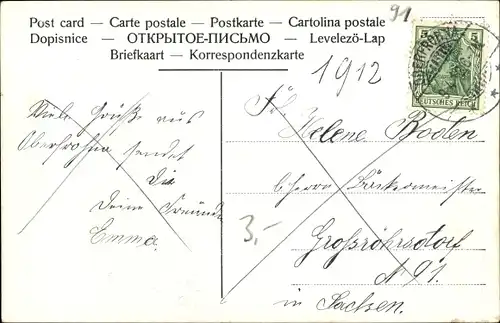 Post card — Carte postale — Postkarte — Cartolina postale
Dopisnice — ОТКРЫТОЕ-ПИСЬМО — Levelező-Lap
Briefkaart — Korrespondenzkarte
91
5 5
DEUTSCHES REICH
1912
Viele Grüße aus
Oberfrohna sendet
Dir
Deine Freundin
Emma.
3,-
Frl.
Helene Boden
b/Herrn Bäckermeister
Großröhrsdorf
N 91.
in Sachsen.